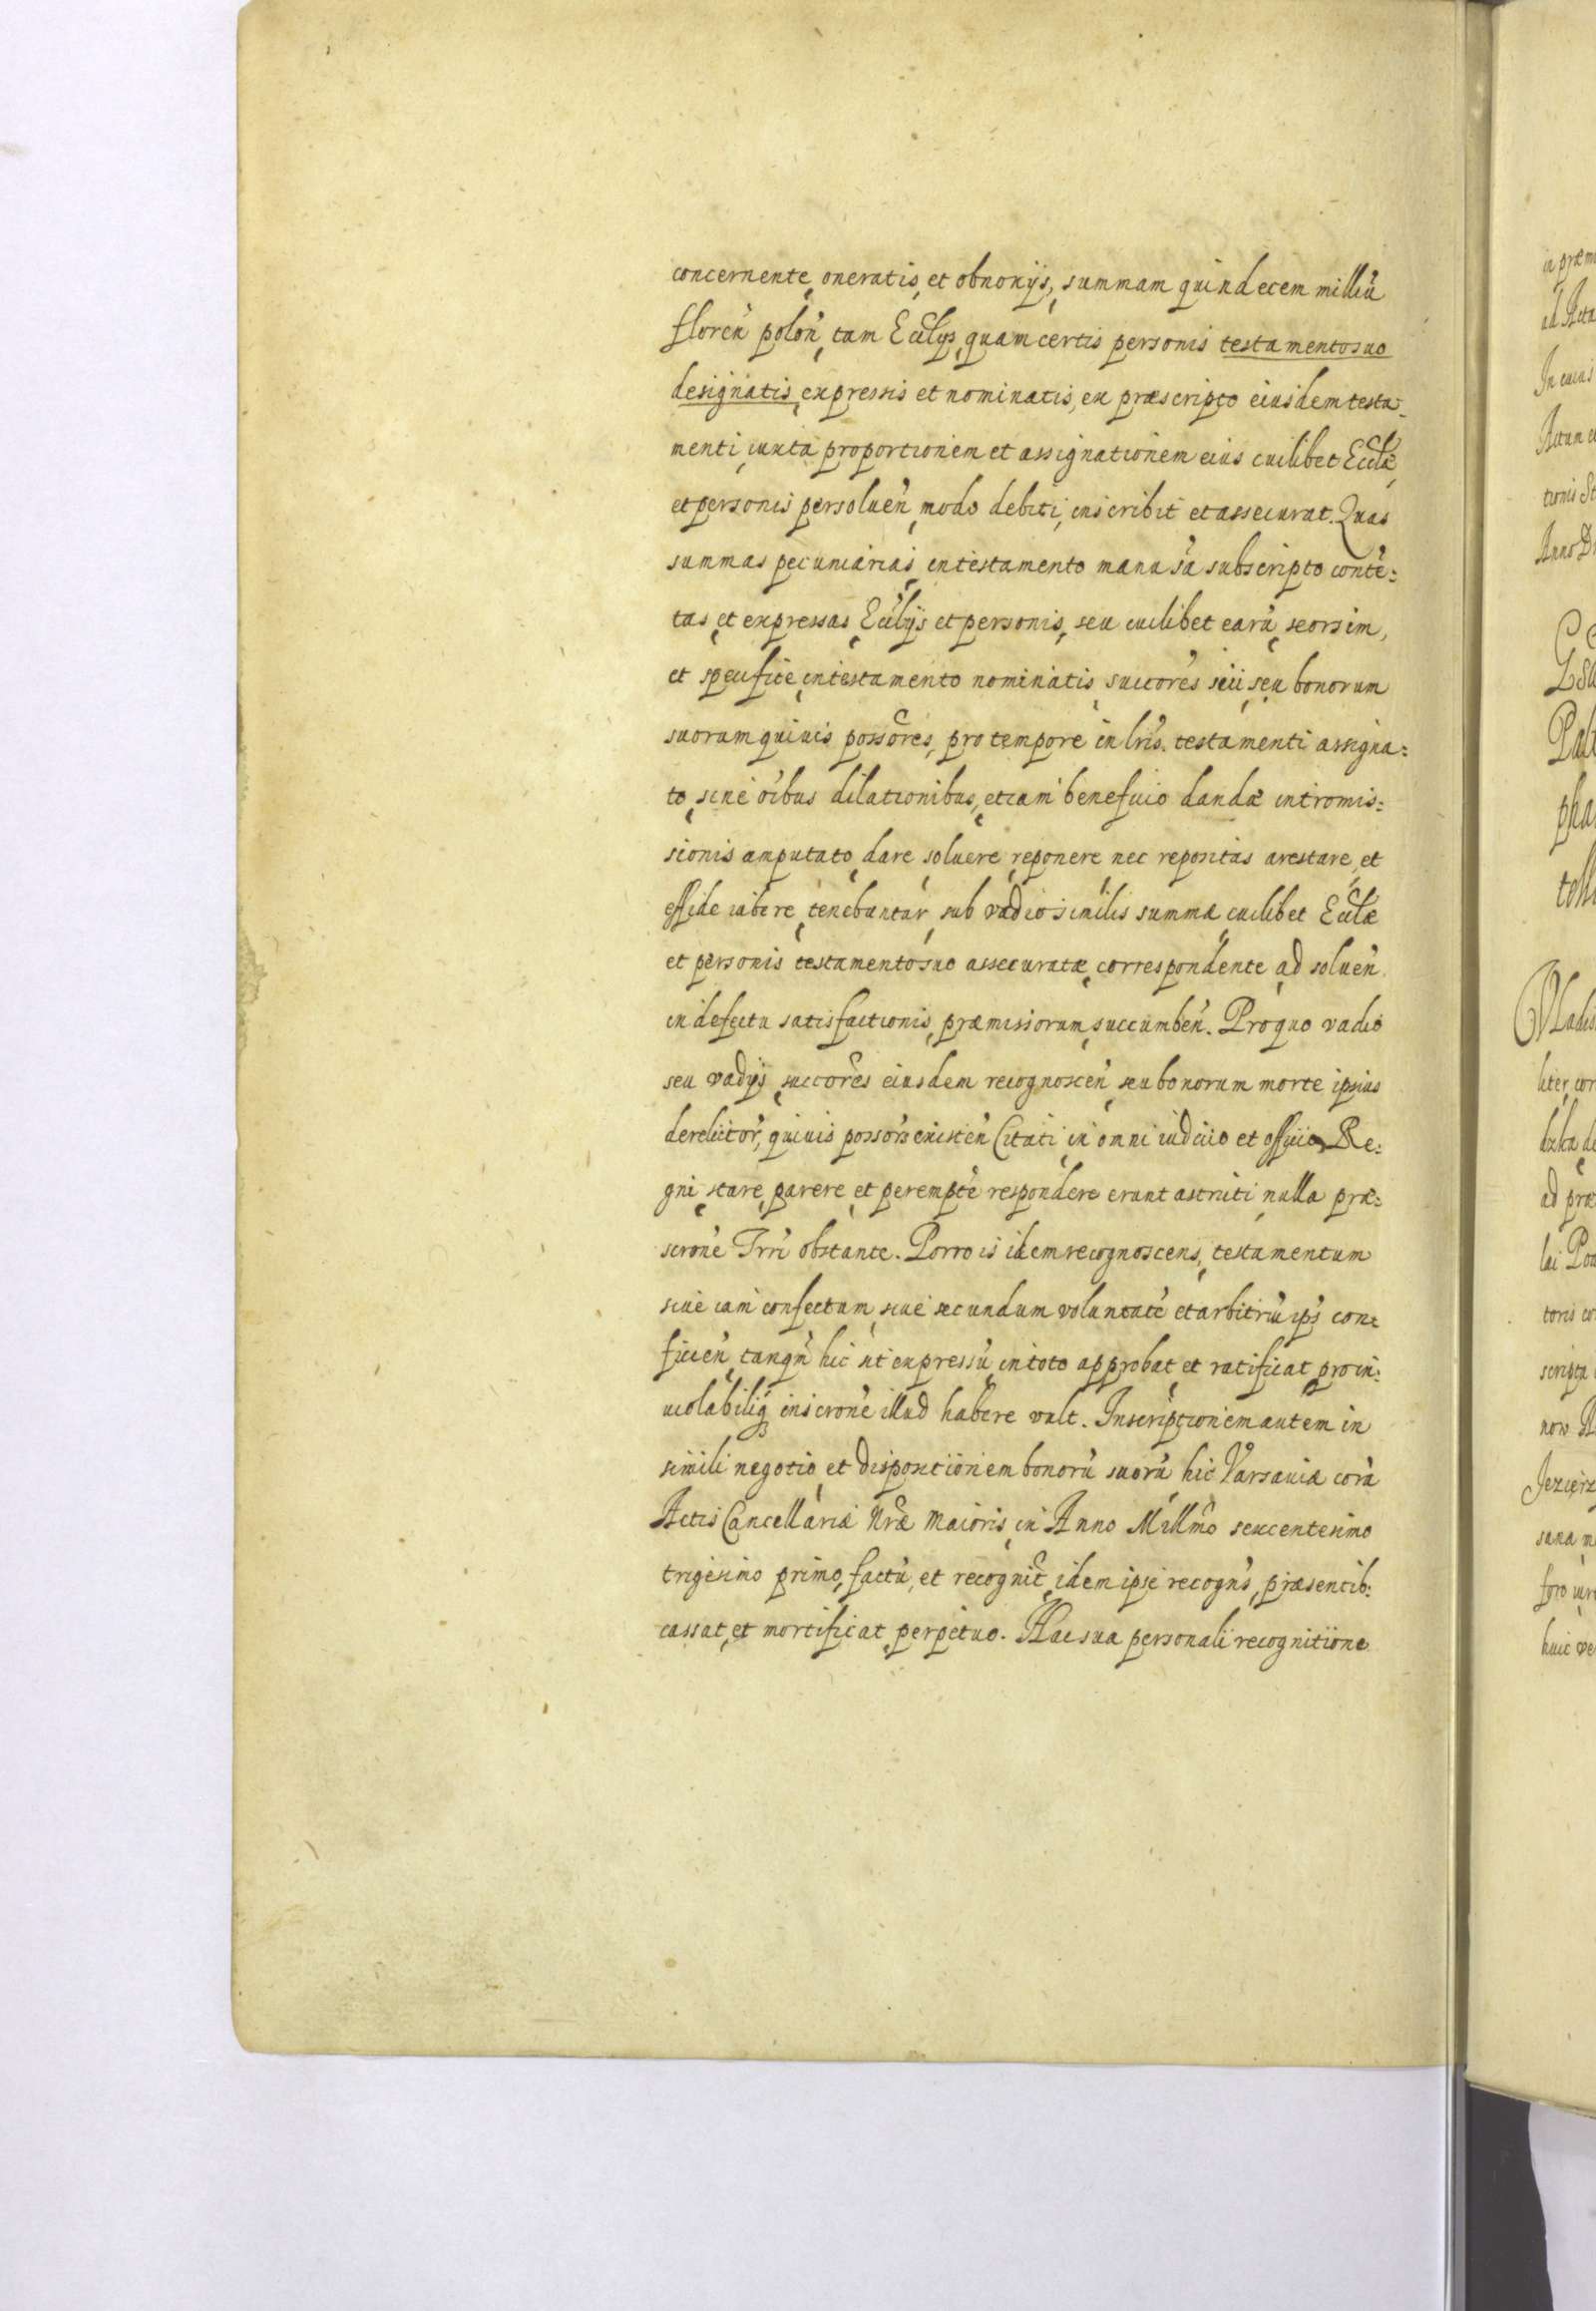 concernente, oneratis, et obnoxijs, summam quindecem milliũ
floreñ poloñ, tam Eccl̃ijs, quam certis personis testamento suo
designatis, expressis et nominatis, ex præscripto eiusdem testa-
menti, iuxta proportionem et assignationem eius cuilibet Eccl̃æ,
et personis persolueñ, modo debiti, inscribit et assecurat. Quas
summas pecuniarias, in testamento manu sũa subscripto contẽ:
tas, et expressas, Eccl̃ijs et personis, seu cuilibet earũ, seorsim,
et specifice, in testamento nominatis, succores̃ sui, seu bonorum
suorum quiuis possor̃es, pro tempore in lr̃is. testamenti assigna:
to, sine oĩbus dilationibus, etiam beneficio dandæ intromis:
sionis amputato, dare, soluere, reponere, nec repositas arestare, et
effide iubere, tenebuntur, sub vadio similis summæ, cuilibet Eccl̃æ
et personis testamento suo assecuratæ, correspondente, ad solueñ
in defectu satisfactionis, præmissorum, succumbeñ. Pro quo vadio
seu vadijs, succor̃es eiusdem recognosceñ, seu bonorum morte ipsius
derelictor̃, quiuis possor̃s existeñ Citati, in omni iudicio et officio, Re:
gni, stare, parere, et peremptẽ respondere erunt astricti, nulla præ:
scronẽ Trr̃i obstante. Porro is idem recognoscens, testamentum
siue iam confectum, siue secundum voluntatẽ et arbitriũ ips̃ con:
ficieñ, tanqm̃ hic ut expressũ, in toto approbat, et ratificat, pro in:
uiolabiliq; inscronẽ illud habere vult. Inscriptionem autem in
simili negotio, et dispositionem bonorũ suorũ, hic Varsauiæ corã
Actis Cancellariæ Nræ̃ Maioris, in Anno Millm̃o sexcentesimo
trigesimo primo, factũ, et recognit̃, idem ipse recogns̃, præsentib:
cassat, et mortificat, perpetuo. Hac sua personali recognitione